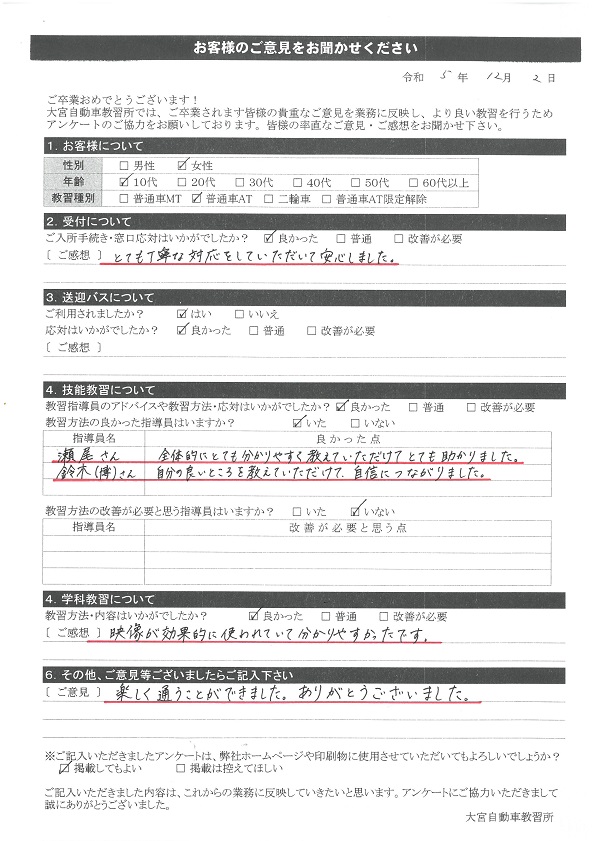 お客様のご意見をお聞かせください
令和 5 年 12 月 2 日
ご卒業おめでとうございます！
大宮自動車教習所では、ご卒業されます皆様の貴重なご意見を業務に反映し、より良い教習を行うため
アンケートのご協力をお願いしております。皆様の率直なご意見・ご感想をお聞かせ下さい。
1. お客様について
性別 □ 男性 ☑ 女性
年齢 ☑ 10代 □ 20代 □ 30代 □ 40代 □ 50代 □ 60代以上
教習種別 □ 普通車MT ☑ 普通車AT □ 二輪車 □ 普通車AT限定解除
2. 受付について
ご入所手続き・窓口応対はいかがでしたか？ ☑ 良かった □ 普通 □ 改善が必要
〔 ご感想 〕 とても丁寧な対応をしていただいて安心しました。
3. 送迎バスについて
ご利用されましたか？ ☑ はい □ いいえ
応対はいかがでしたか？ ☑ 良かった □ 普通 □ 改善が必要
〔 ご感想 〕
4. 技能教習について
教習指導員のアドバイスや教習方法・応対はいかがでしたか？ ☑ 良かった □ 普通 □ 改善が必要
教習方法の良かった指導員はいますか？ ☑ いた □ いない
指導員名 良かった点
瀬尾さん 全体的にとても分かりやすく教えていただけてとても助かりました。
鈴木(博)さん 自分の良いところを教えていただけて、自信につながりました。
教習方法の改善が必要と思う指導員はいますか？ □ いた ☑ いない
指導員名 改善が必要と思う点
4. 学科教習について
教習方法・内容はいかがでしたか？ ☑ 良かった □ 普通 □ 改善が必要
〔 ご感想 〕 映像が効果的に使われていて分かりやすかったです。
6. その他、ご意見等ございましたらご記入下さい
〔 ご意見 〕 楽しく通うことができました。ありがとうございました。
※ご記入いただきましたアンケートは、弊社ホームページや印刷物に使用させていただいてもよろしいでしょうか？
☑ 掲載してもよい □ 掲載は控えてほしい
ご記入いただきました内容は、これからの業務に反映していきたいと思います。アンケートにご協力いただきまして
誠にありがとうございました。
大宮自動車教習所